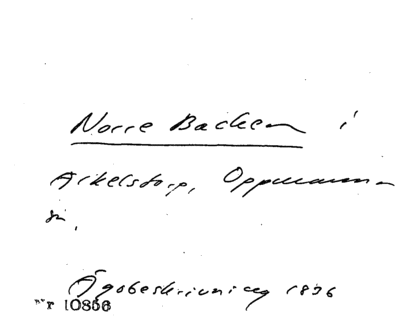 Norre Backen i
Arkelstorp, Oppmanna
sn.
Ägobeskrivning 1826
nr 10856